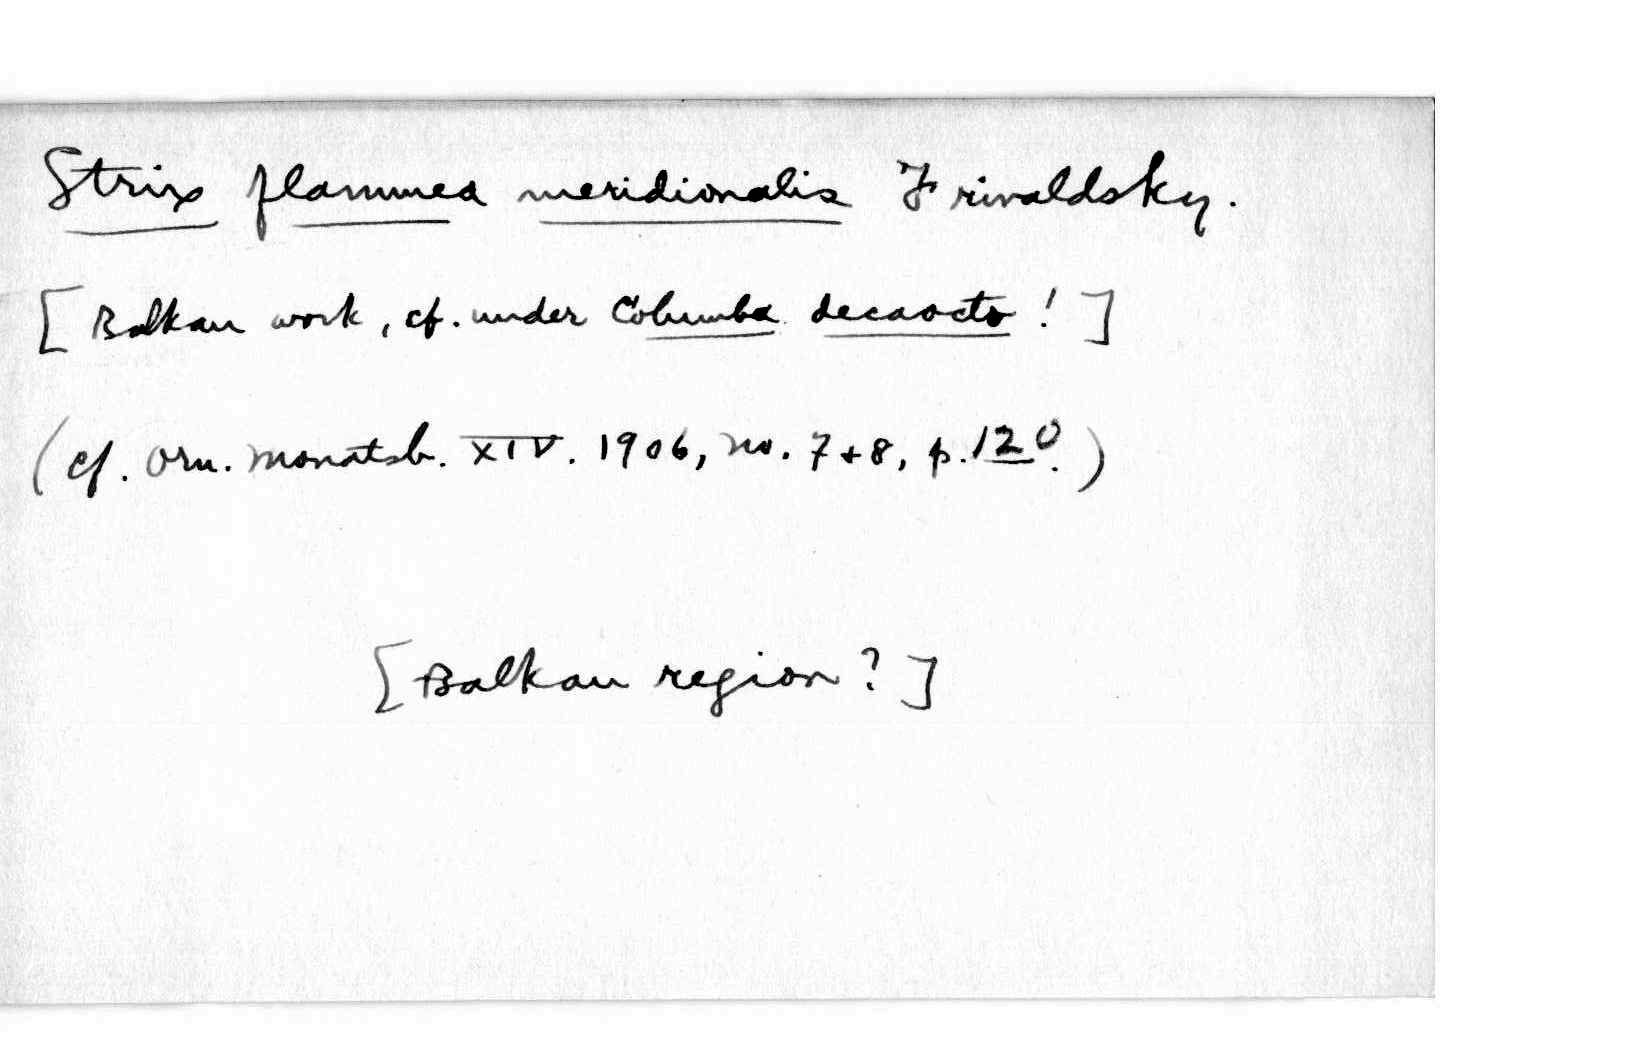 Strix flammea meridionalis Frivaldsky.
[Balkan work, cf. under Columba decaocto!]
(cf. Orn. Monatsb. XIV. 1906, no. 7+8, p. 120.)
[Balkan region?]